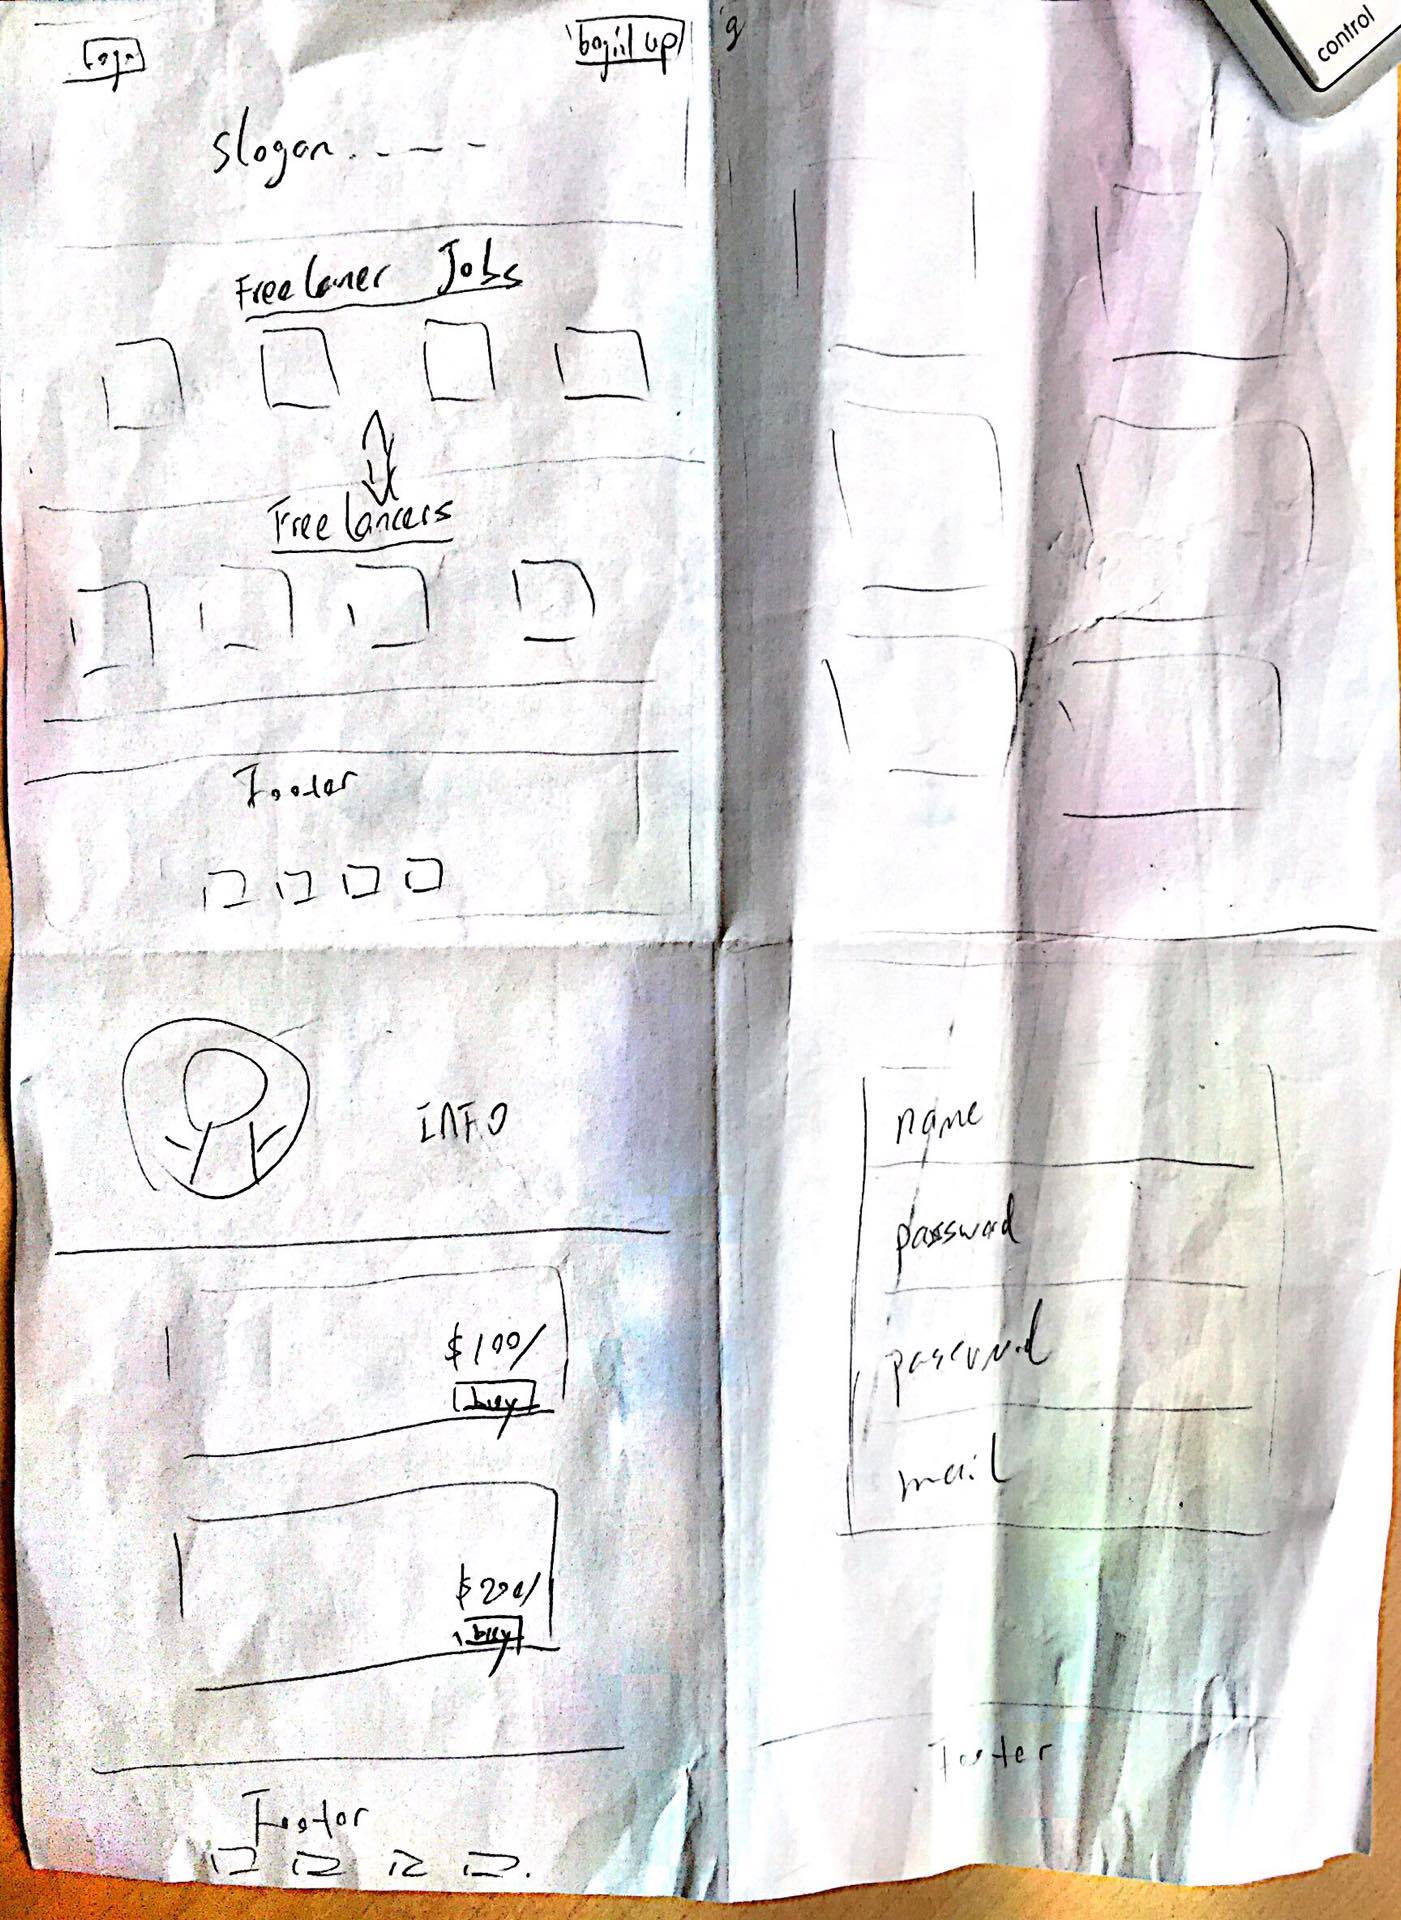 Logo
up
slogan....
Freelancer Jobs
Freelancers
Footer
g
control
INFO
$100/
buy
$200/
buy
Footer
name
password
password
mail
Footer